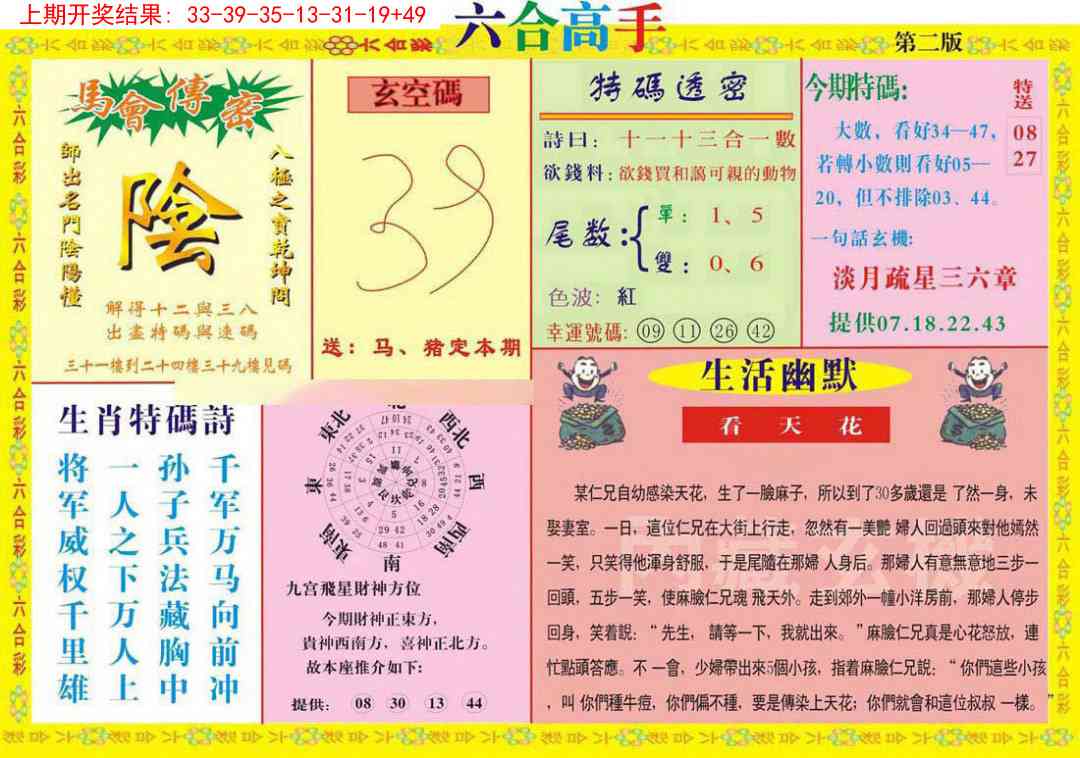 上期开奖结果: 33-39-35-13-31-19+49
六合高手
第二版
馬會傳密
師出名門陰陽懂
陰
八極之實乾坤問
解得十二與三八
出盡特碼與連碼
三十一樓到二十四樓三十九樓見碼
玄空碼
送：马、猪定本期
特碼透密
詩曰：十一十三合一數
欲錢料：欲錢買和藹可親的動物
尾数：
單：1、5
雙：0、6
色波：紅
幸運號碼：09 11 26 42
今期特碼:
特送
08
27
大數，看好34—47，
若轉小數則看好05—
20，但不排除03、44。
一句話玄機:
淡月疏星三六章
提供07.18.22.43
生肖特碼詩
千军万马向前冲
孙子兵法藏胸中
一人之下万人上
将军威权千里雄
東北
北
西北
東
西
東南
南
西南
九宫飛星財神方位
今期財神正東方，
貴神西南方，喜神正北方。
故本座推介如下:
提供: 08 30 13 44
生活幽默
看天花
某仁兄自幼感染天花，生了一臉麻子，所以到了30多歲還是 了然一身，未
娶妻室。一日，這位仁兄在大街上行走，忽然有一美艷 婦人回過頭來對他嫣然
一笑，只笑得他渾身舒服，于是尾隨在那婦 人身后。那婦人有意無意地三步一
回頭，五步一笑，使麻臉仁兄魂 飛天外。走到郊外一幢小洋房前，那婦人停步
回身，笑着說：“先生， 請等一下，我就出來。”麻臉仁兄真是心花怒放，連
忙點頭答應。不 一會，少婦帶出來5個小孩，指着麻臉仁兄說：“你們這些小孩
，叫 你們種牛痘，你們偏不種，要是傳染上天花；你們就會和這位叔叔 一樣。”